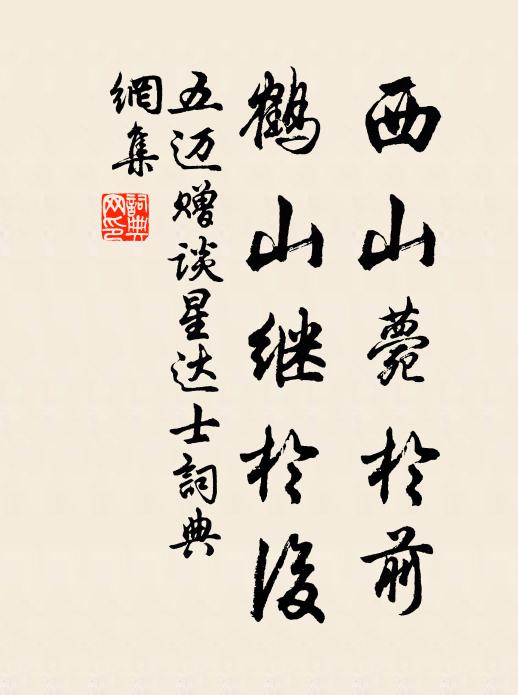 西山薨於前
鶴山继於後
五迈赠谈星达士詞典
網集
詞典
网印